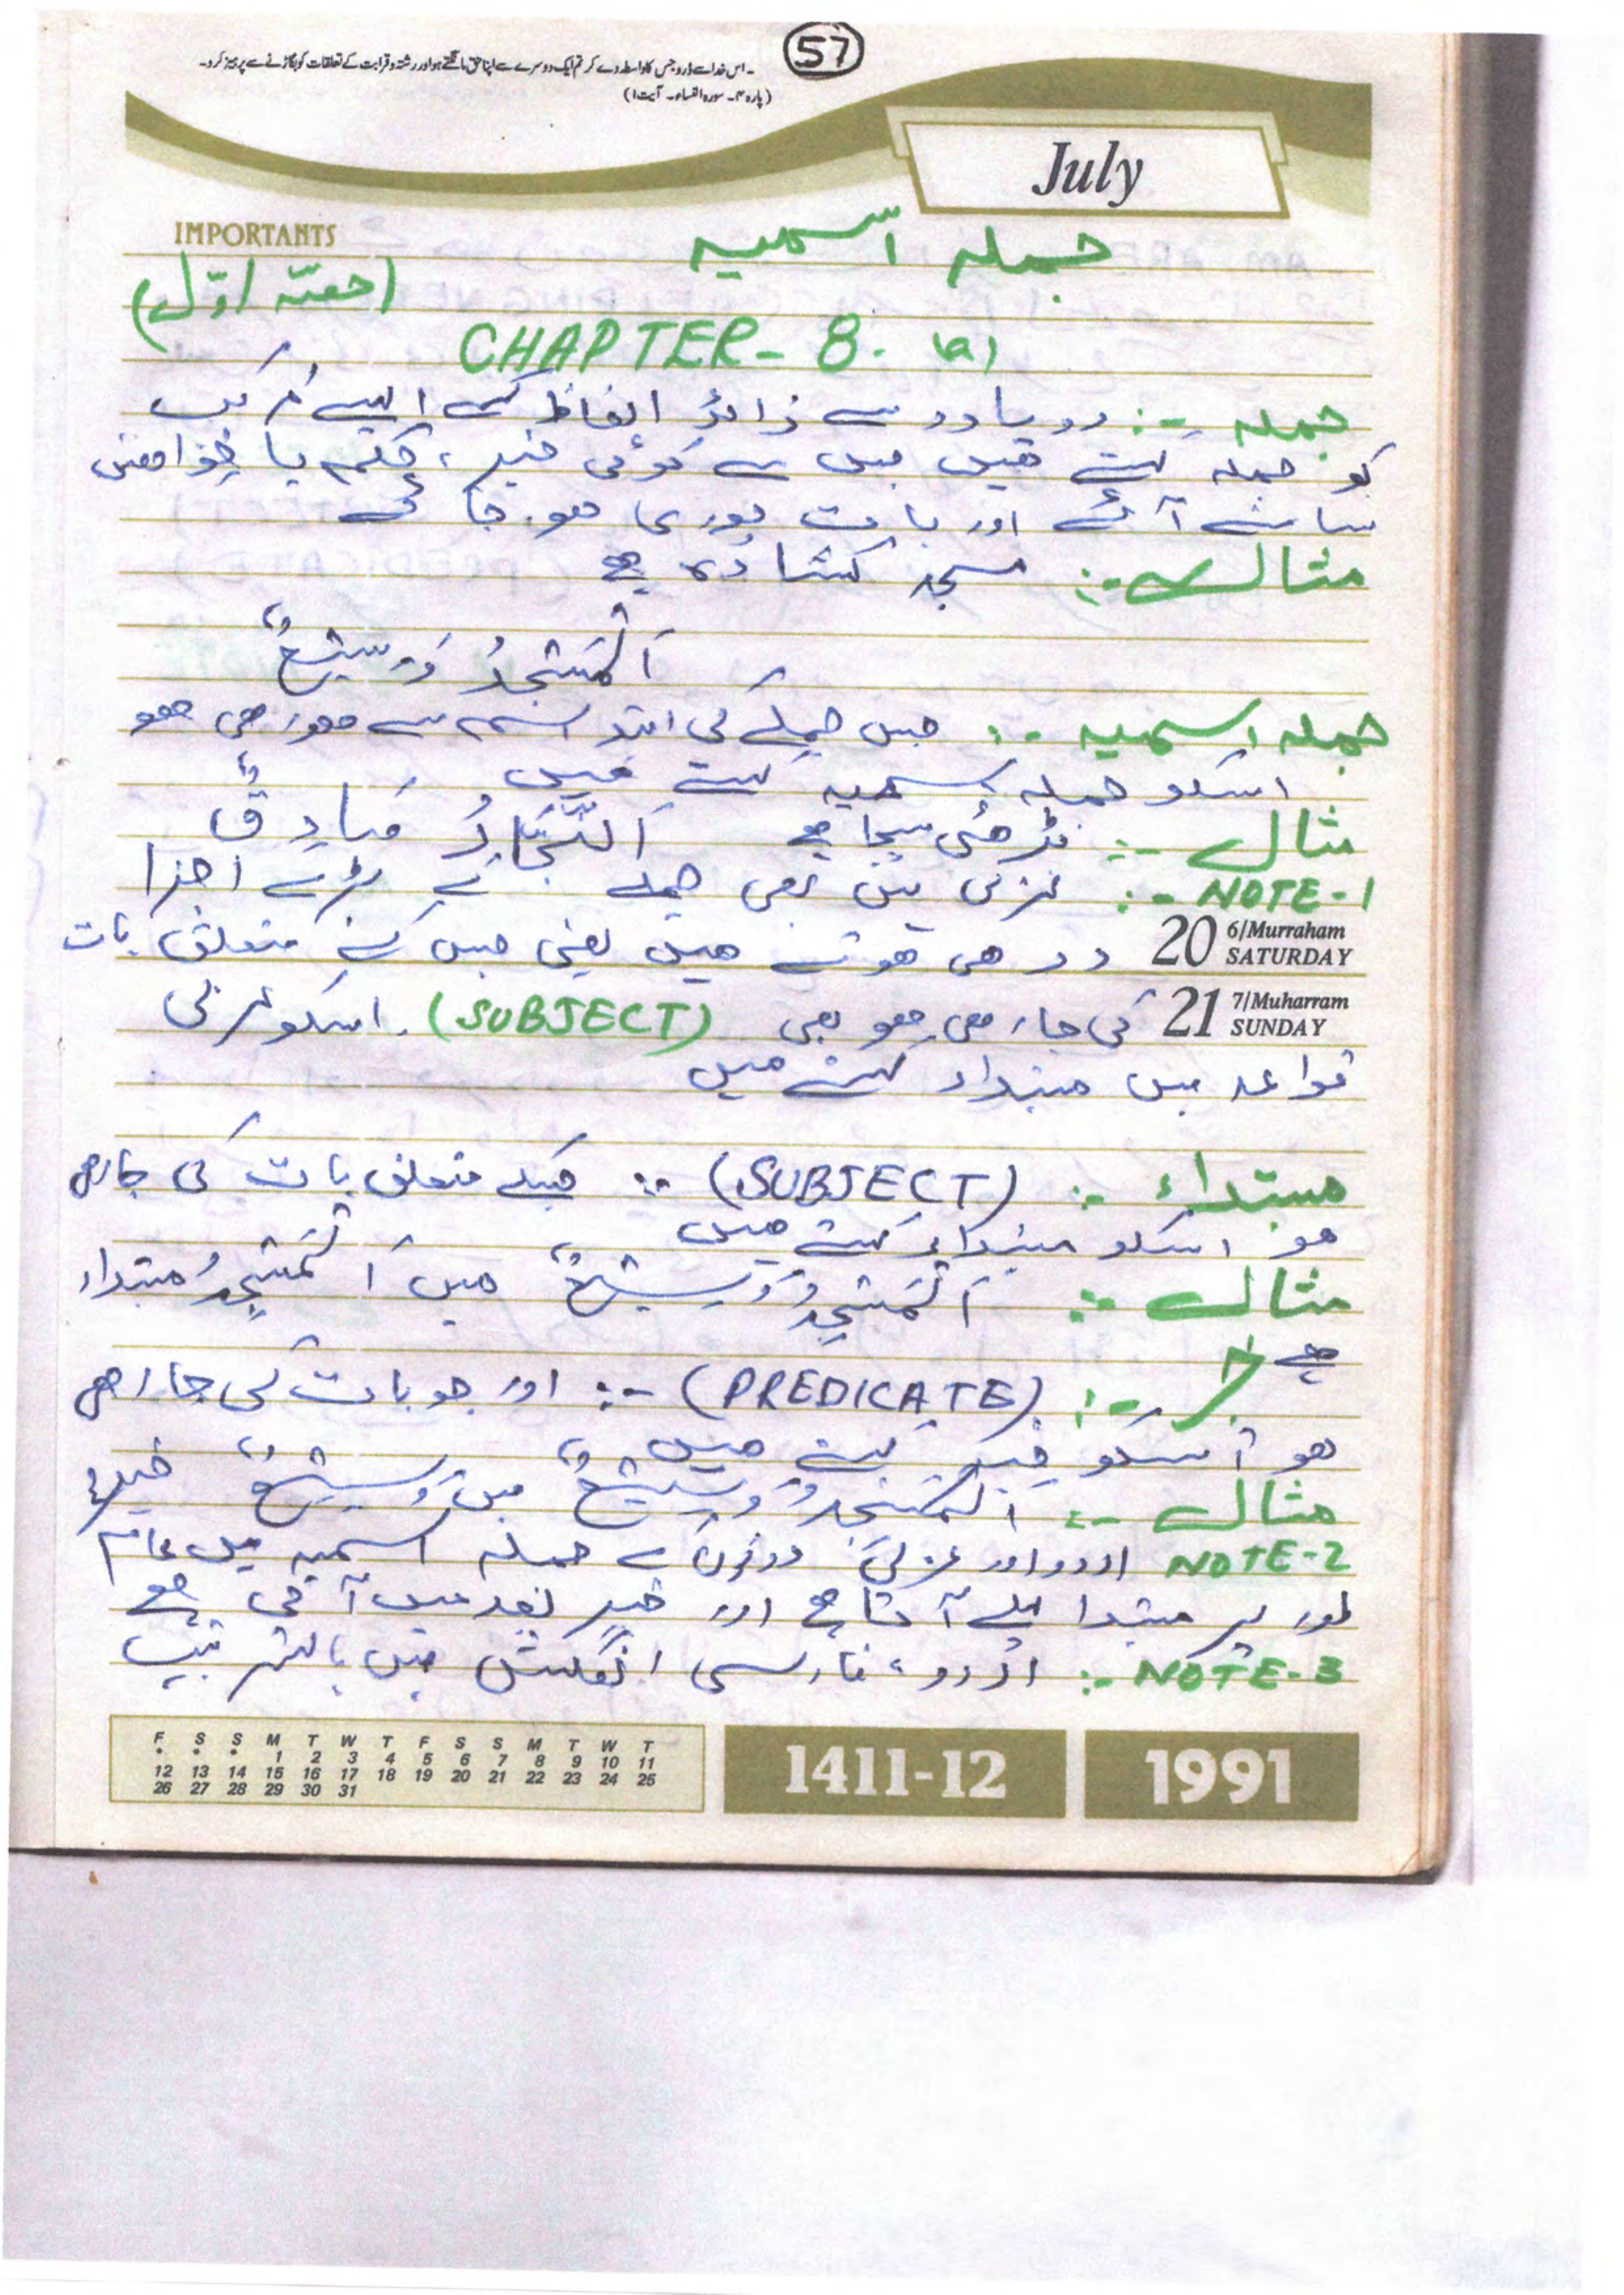 57
۔اس خدا سے ڈرو جس کا واسطہ دے کر تم ایک دوسرے سے اپنا حق مانگتے ہو اور رشتہ و قرابت کے تعلقات کو بگاڑنے سے پرہیز کرو۔
(پارہ ۴۔ سورہ النساء۔ آیت ۱)
July
IMPORTANTS
جملہ اسمیہ
(حصّہ اوّل)
CHAPTER - 8. (a)
جملہ :- دو یا دو سے زائد الفاظ کے ایسے مرکب
کو جملہ کہتے ھیں جس سے کوئی خبر، حکم یا خواھش
سامنے آئے اور بات پوری ھو جائے
مثال :- مسجد کشادہ ھے
اَلْمَسْجِدُ وَسِيْعٌ
جملہ اسمیہ :- جس جملے کی ابتدا اسم سے ھو رھی ھو
اسکو جملہ اسمیہ کہتے ھیں
مثال :- بڑھئی سچا ھے اَلنَّجَّارُ صَادِقٌ
NOTE-1 :- عربی میں بھی جملے کے بڑے اجزا
20 6/Murraham SATURDAY دو ھی ھوتے ھیں یعنی جس کے متعلق بات
21 7/Muharram SUNDAY کی جا رھی ھو یعنی (SUBJECT). اسکو عربی
قواعد میں مبتداء کہتے ھیں
مبتداء :- (SUBJECT) :- جسکے متعلق بات کی جا رھی
ھو اسکو مبتداء کہتے ھیں
مثال :- اَلْمَسْجِدُ وَسِيْعٌ میں اَلْمَسْجِدُ مبتداء
ھے
خبر :- (PREDICATE) :- اور جو بات کی جا رھی
ھو اُسکو خبر کہتے ھیں
مثال :- اَلْمَسْجِدُ وَسِيْعٌ میں وَسِيْعٌ خبر ھے
NOTE-2 اردو اور عربی دونوں کے جملہ اسمیہ میں عام
طور پر مبتدا پہلے آتا ھے اور خبر بعد میں آتی ھے
NOTE-3 :- اُردو، فارسی انگلش میں بالترتیب
F S S M T W T F S S M T W T
* * * 1 2 3 4 5 6 7 8 9 10 11
12 13 14 15 16 17 18 19 20 21 22 23 24 25
26 27 28 29 30 31
1411-12
1991